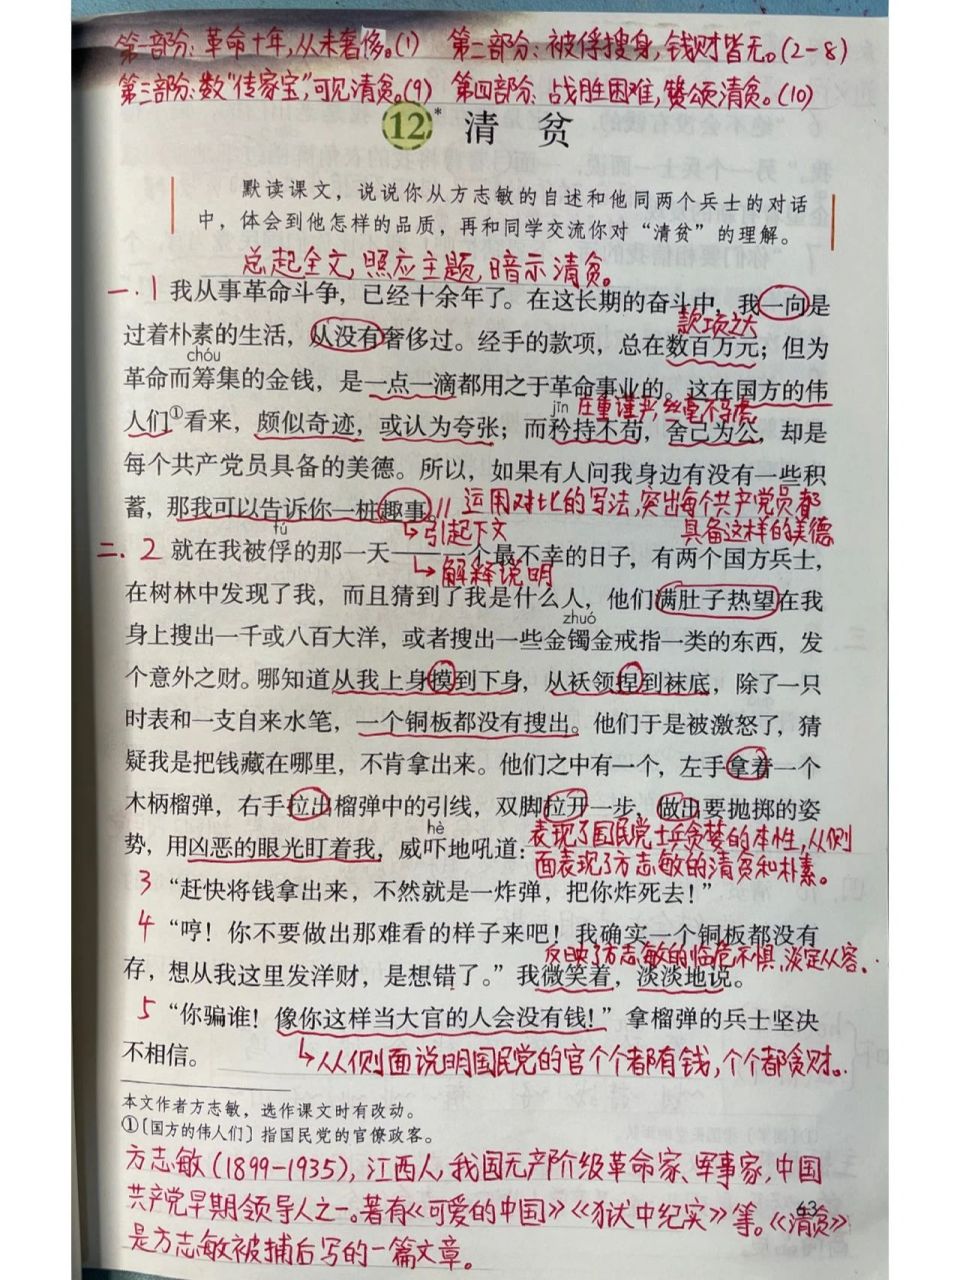 第一部分：革命十年，从未奢侈。(1) 第二部分：被俘搜身，钱财皆无。(2-8)
第三部分：数“传家宝”，可见清贫。(9) 第四部分：战胜困难，赞颂清贫。(10)
12* 清 贫
默读课文，说说你从方志敏的自述和他同两个兵士的对话
中，体会到他怎样的品质，再和同学交流你对“清贫”的理解。
总起全文，照应主题，暗示清贫。
一.1 我从事革命斗争，已经十余年了。在这长期的奋斗中，我一向是
款项之大
过着朴素的生活，从没有奢侈过。经手的款项，总在数百万元；但为
chóu
革命而筹集的金钱，是一点一滴都用之于革命事业的。这在国方的伟
jīn 庄重谨严，丝毫不马虎
人们①看来，颇似奇迹，或认为夸张；而矜持不苟，舍己为公，却是
每个共产党员具备的美德。所以，如果有人问我身边有没有一些积
蓄，那我可以告诉你一桩趣事。// 运用对比的写法，突出每个共产党员都
具备这样的美德
→引起下文
fú
二.2 就在我被俘的那一天——一个最不幸的日子，有两个国方兵士，
→解释说明
在树林中发现了我，而且猜到了我是什么人，他们满肚子热望在我
zhuó
身上搜出一千或八百大洋，或者搜出一些金镯金戒指一类的东西，发
个意外之财。哪知道从我上身摸到下身，从袄领捏到袜底，除了一只
时表和一支自来水笔，一个铜板都没有搜出。他们于是被激怒了，猜
疑我是把钱藏在哪里，不肯拿出来。他们之中有一个，左手拿着一个
木柄榴弹，右手拉出榴弹中的引线，双脚拉开一步，做出要抛掷的姿
hè
势，用凶恶的眼光盯着我，威吓地吼道：
表现了国民党士兵贪婪的本性，从侧
面表现了方志敏的清贫和朴素。
3 “赶快将钱拿出来，不然就是一炸弹，把你炸死去！”
4 “哼！你不要做出那难看的样子来吧！我确实一个铜板都没有
反映了方志敏的临危不惧，淡定从容.
存，想从我这里发洋财，是想错了。”我微笑着，淡淡地说。
5 “你骗谁！像你这样当大官的人会没有钱！”拿榴弹的兵士坚决
不相信。
→从侧面说明国民党的官个个都有钱，个个都贪财.
本文作者方志敏，选作课文时有改动。
①〔国方的伟人们〕指国民党的官僚政客。
方志敏(1899-1935)，江西人，我国无产阶级革命家、军事家，中国
共产党早期领导人之一。著有《可爱的中国》《狱中纪实》等。《清贫》
63
是方志敏被捕后写的一篇文章。